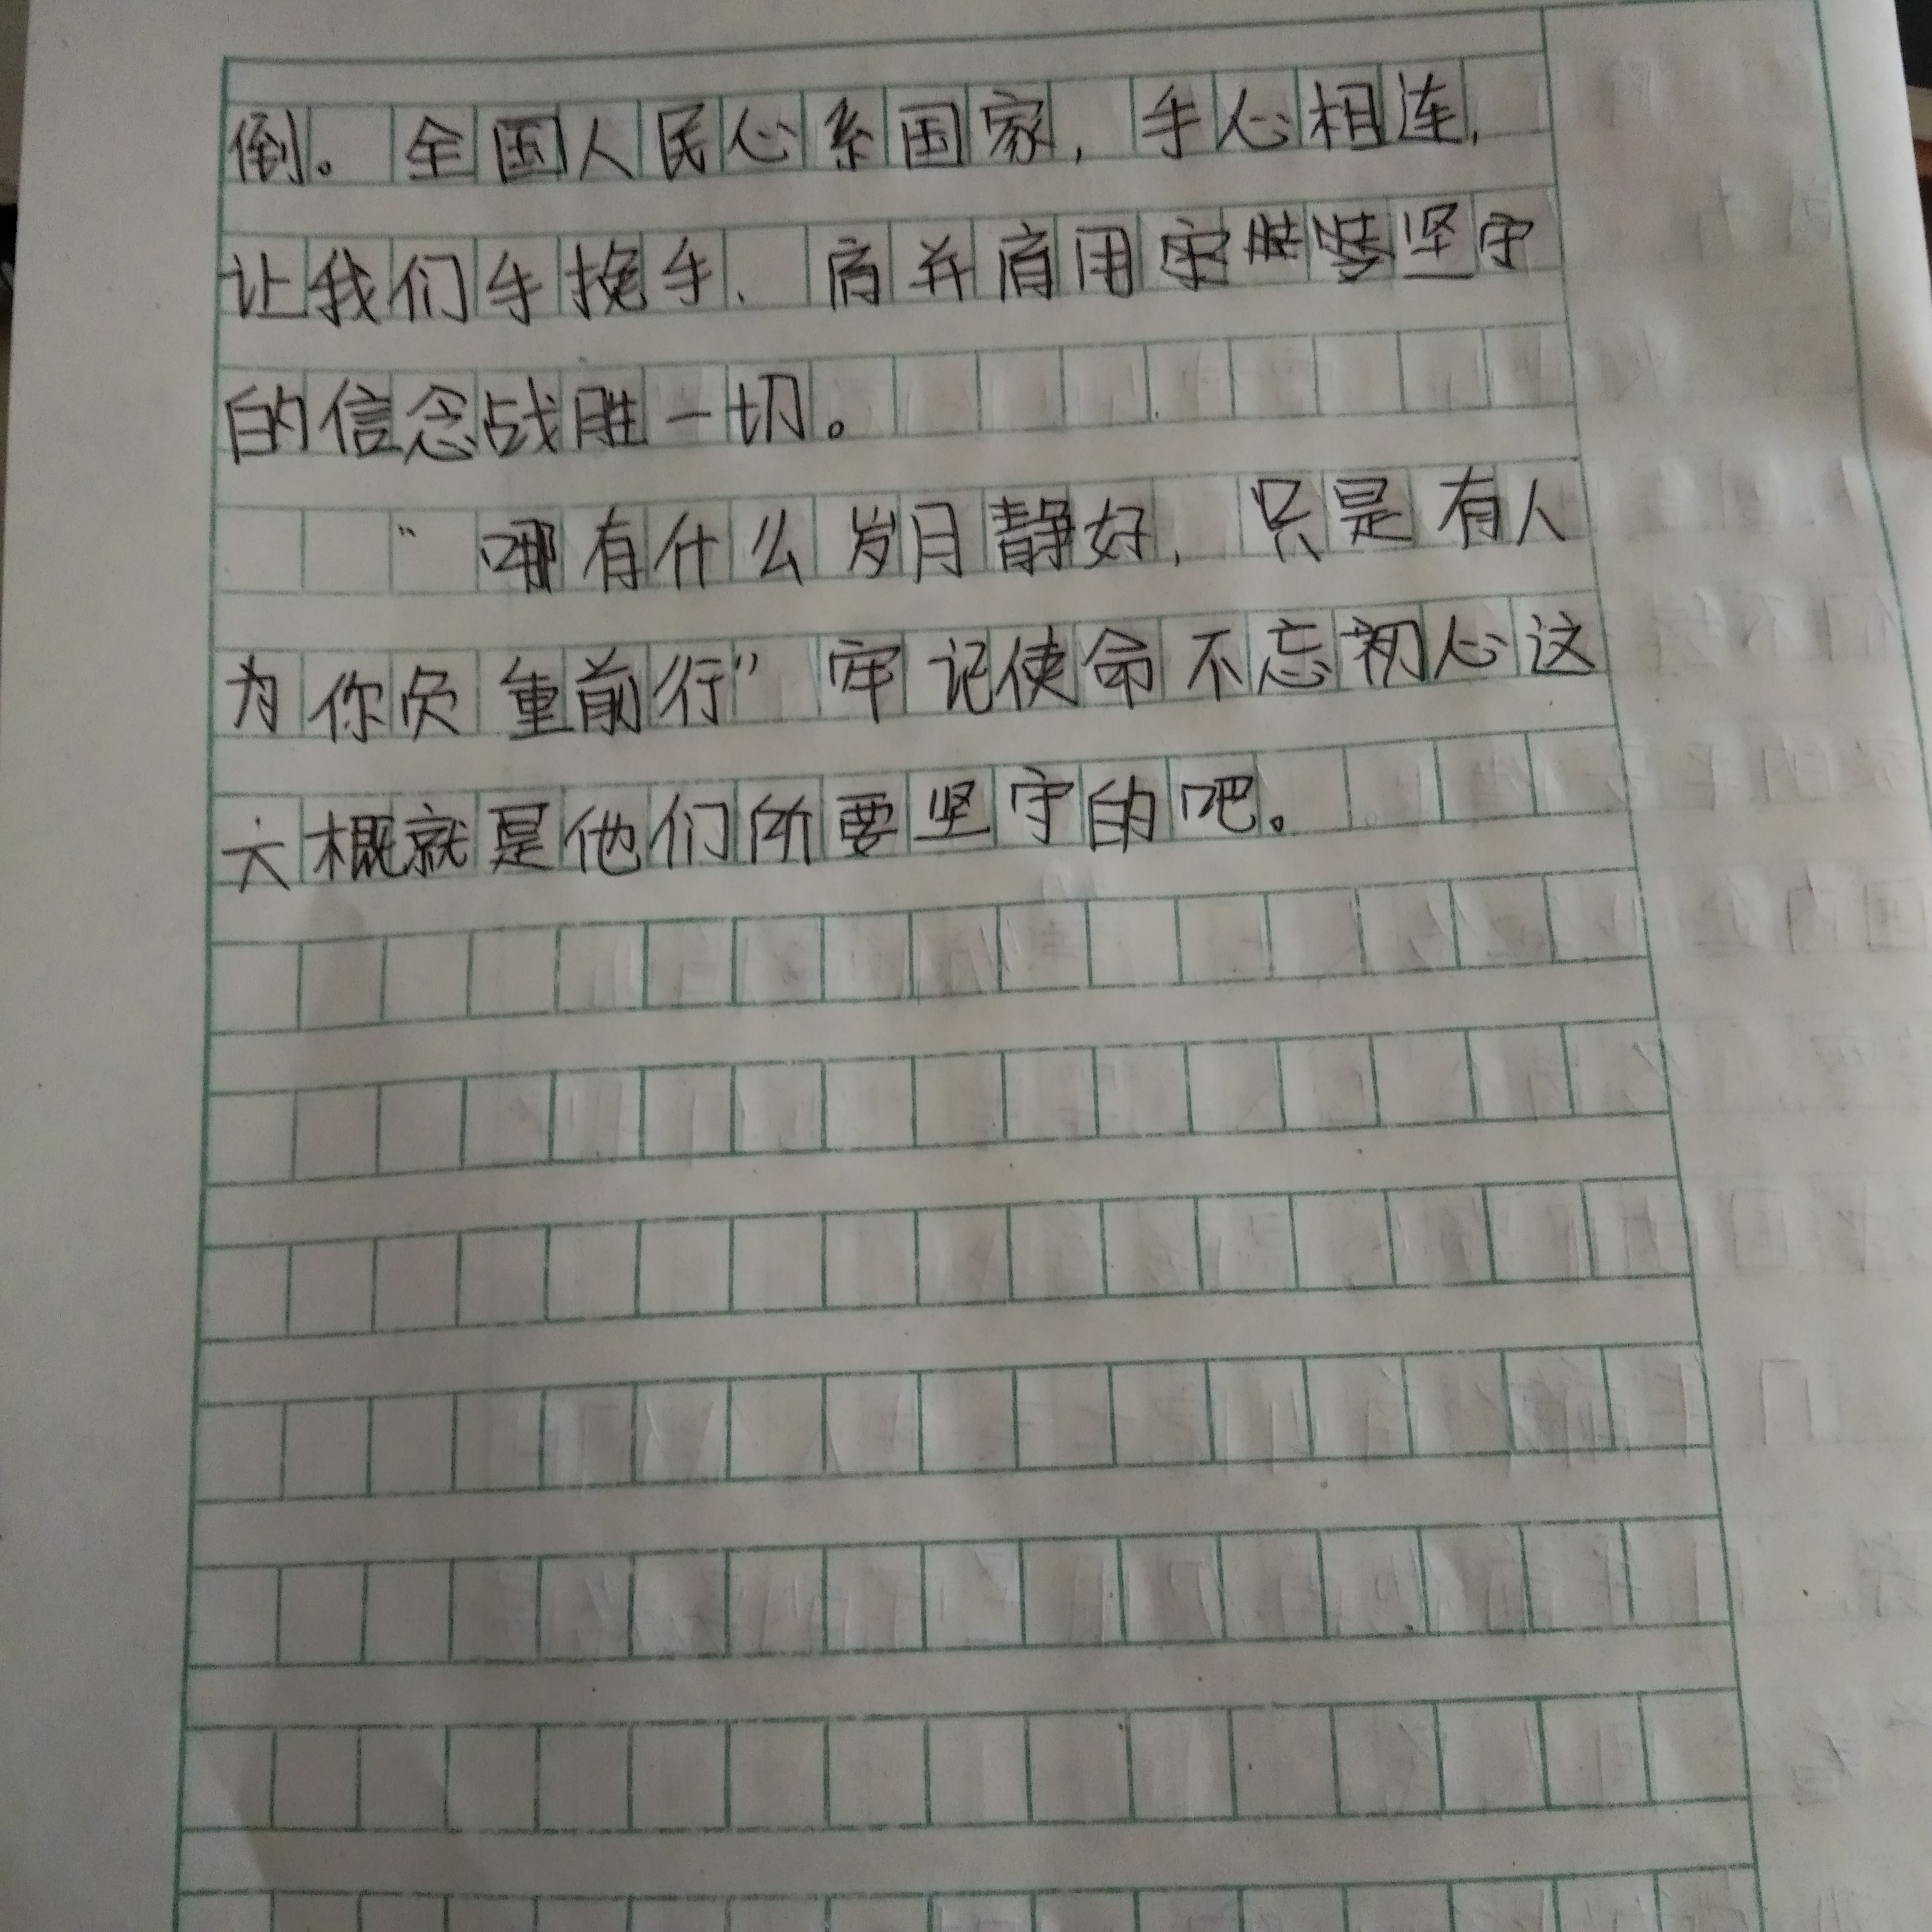 倒。全国人民心系国家，手心相连，
让我们手挽手、肩并肩用坚守
的信念战胜一切。
“哪有什么岁月静好，只是有人
为你负重前行”牢记使命不忘初心这
大概就是他们所要坚守的吧。